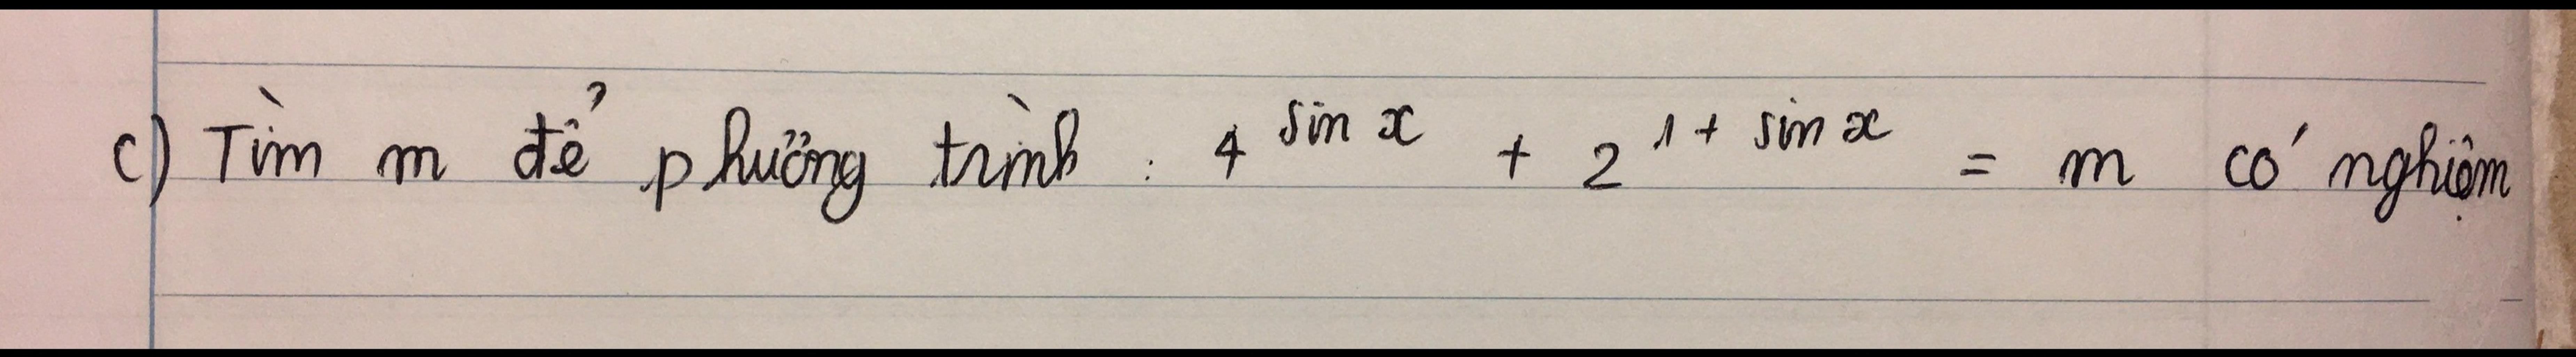 c) Tìm m để phương trình : 4^{sin x} + 2^{1 + sin x} = m có nghiệm